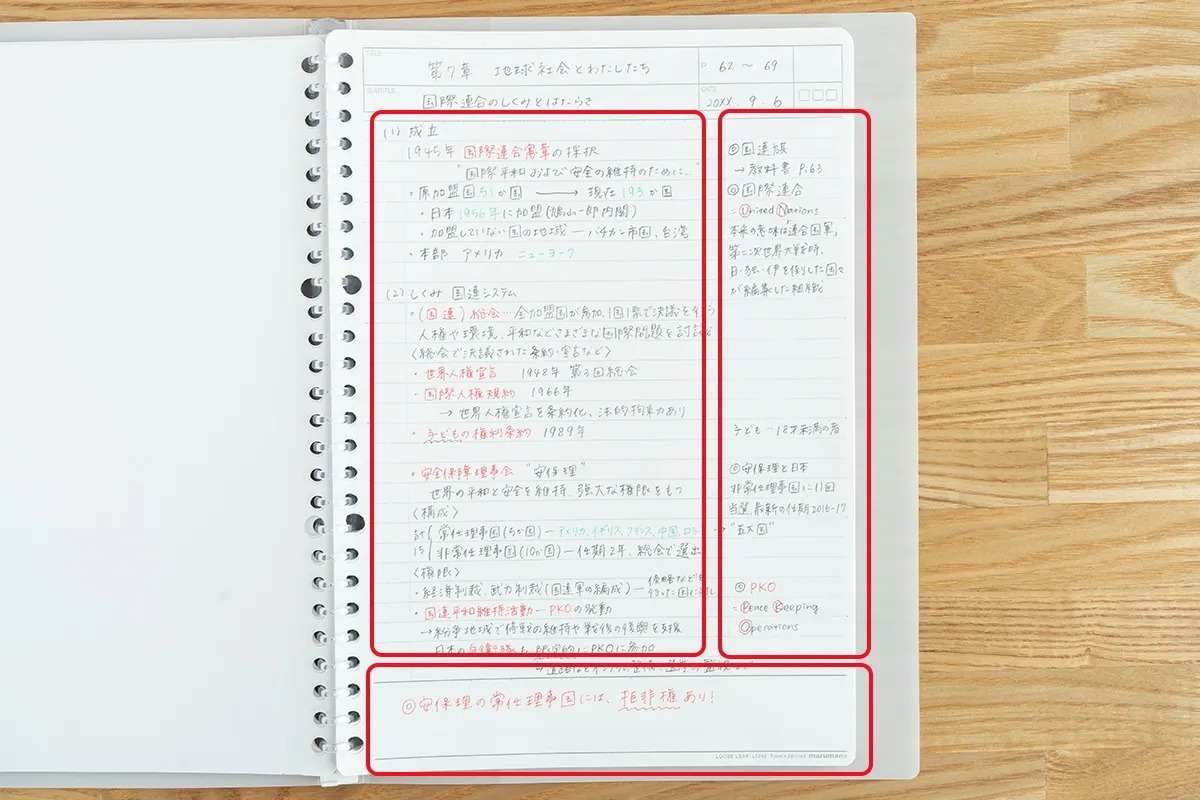 TITLE
第7章 地球社会とわたしたち
P. 62 ～ 69
SUBTITLE
国際連合のしくみとはたらき
DATE
20XX. 9. 6
(1) 成立
1945年 国際連合憲章の採択
"国際平和および安全の維持のために…"
・原加盟国51か国 → 現在193か国
・日本1956年に加盟(鳩山一郎内閣)
・加盟していない国の地域 ― バチカン市国、台湾
・本部 アメリカ ニューヨーク
(2) しくみ 国連システム
・(国連) 総会… 全加盟国が参加、1国1票で決議を行う
人権や環境、平和などさまざまな国際問題を討議
〈総会で決議された条約・宣言など〉
・世界人権宣言 1948年 第3回総会
・国際人権規約 1966年
→ 世界人権宣言を条約化、法的拘束力あり
・子どもの権利条約 1989年
・安全保障理事会 "安保理"
世界の平和と安全を維持、強大な権限をもつ
〈構成〉
計 常任理事国(5か国) ― アメリカ、イギリス、フランス、中国、ロシア →
15 非常任理事国(10か国) ― 任期2年、総会で選出
〈権限〉
・経済制裁、武力制裁(国連軍の編成) ― 侵略などを
行った国に対し
・国連平和維持活動 ― PKOの発動
→紛争地域で停戦の維持や戦後の復興を支援
日本の自衛隊も 限定的にPKOに参加
◎国連旗
→ 教科書 P.63
◎国際連合
= United Nations
本来の意味は「連合国軍」
第二次世界大戦時、
日・独・伊を倒した国々
が編集した組織
子ども…18才未満の者
◎安保理と日本
非常任理事国に11回
当選、最新の任期2016-17
"五大国"
◎ PKO
= Peace Keeping
Operations
◎安保理の常任理事国には、拒非権あり!
LOOSE LEAF maruman